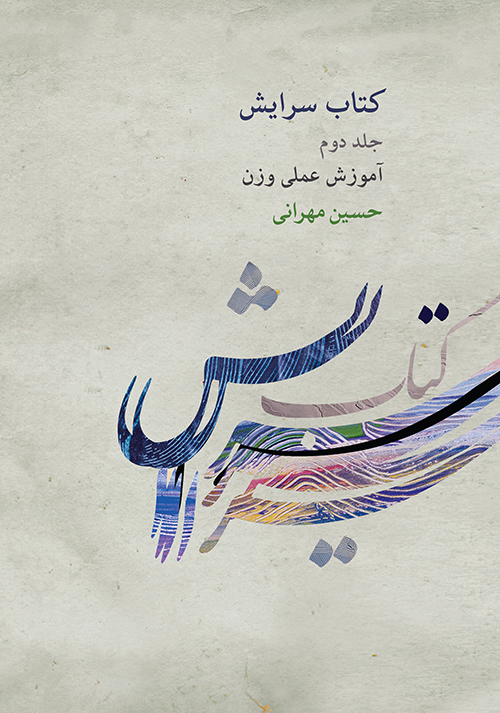 کتاب سرایش
جلد دوم
آموزش عملی وزن
حسین مهرانی
کتاب
سرایش